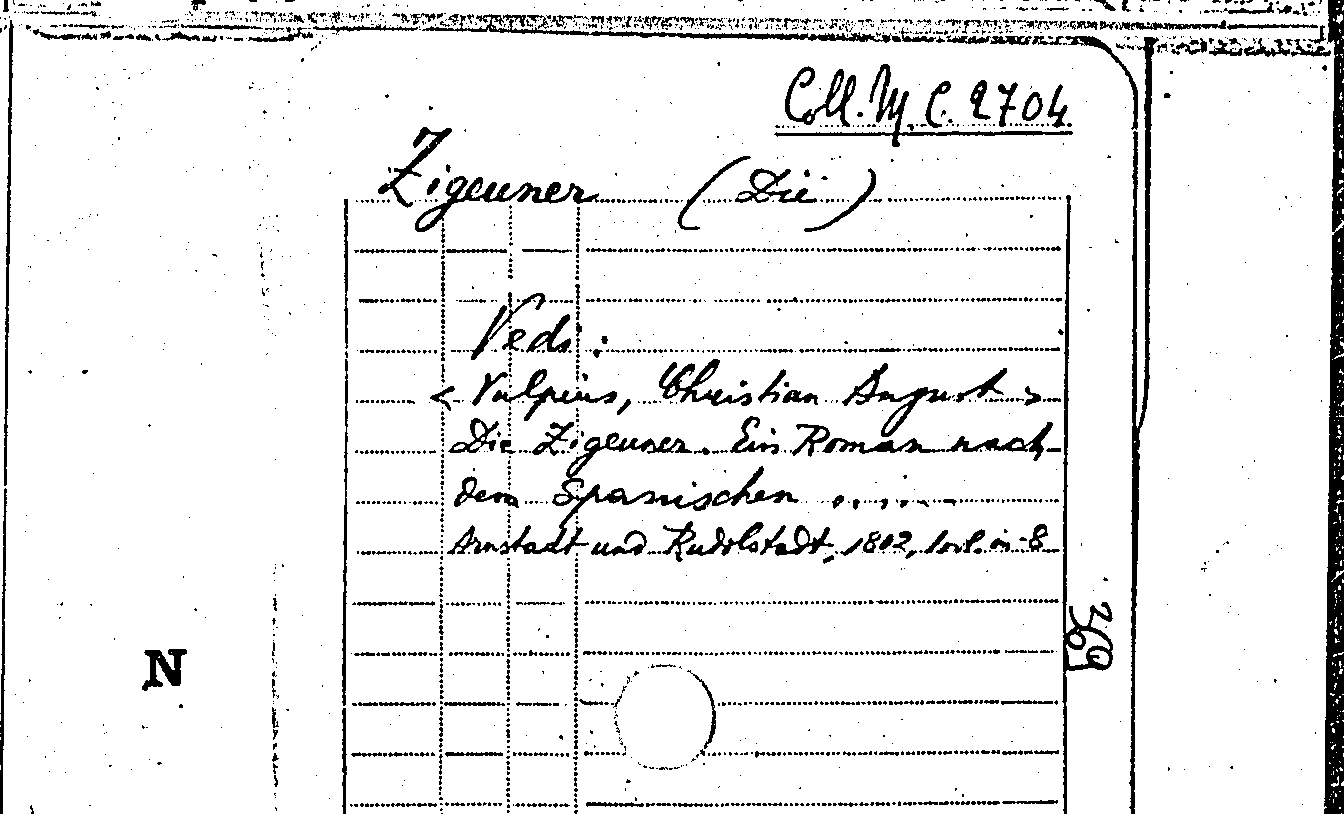 Coll. M. C. 2704
Zigeuner (Die)
Vedi:
< Vulpius, Christian August >
Die Zigeuner. Ein Roman nach
dem Spanischen ......
Arnstadt und Rudolstadt, 1802, 1 vol. in-8
369
N